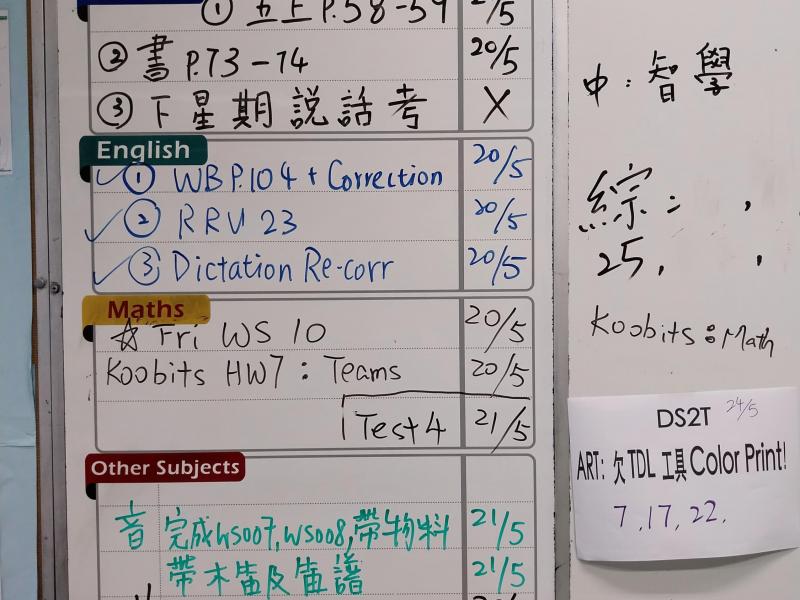 ① 五上 P.58-59 21/5
② 書 P.73-74 20/5
③ 下星期説話考 X
English
① WB P.104 + Correction 20/5
② RRV 23 20/5
③ Dictation Re-corr 20/5
Maths
☆ Fri WS 10 20/5
Koobits HW7 : Teams 20/5
Test 4 21/5
Other Subjects
音 完成WS007, WS008, 帶物料 21/5
帶木笛及笛譜 21/5
中 : 智學
綜 : ,
25, ,
Koobits : Math
DS2T 24/5
ART: 欠 TDL 工具 Color Print!
7, 17, 22,